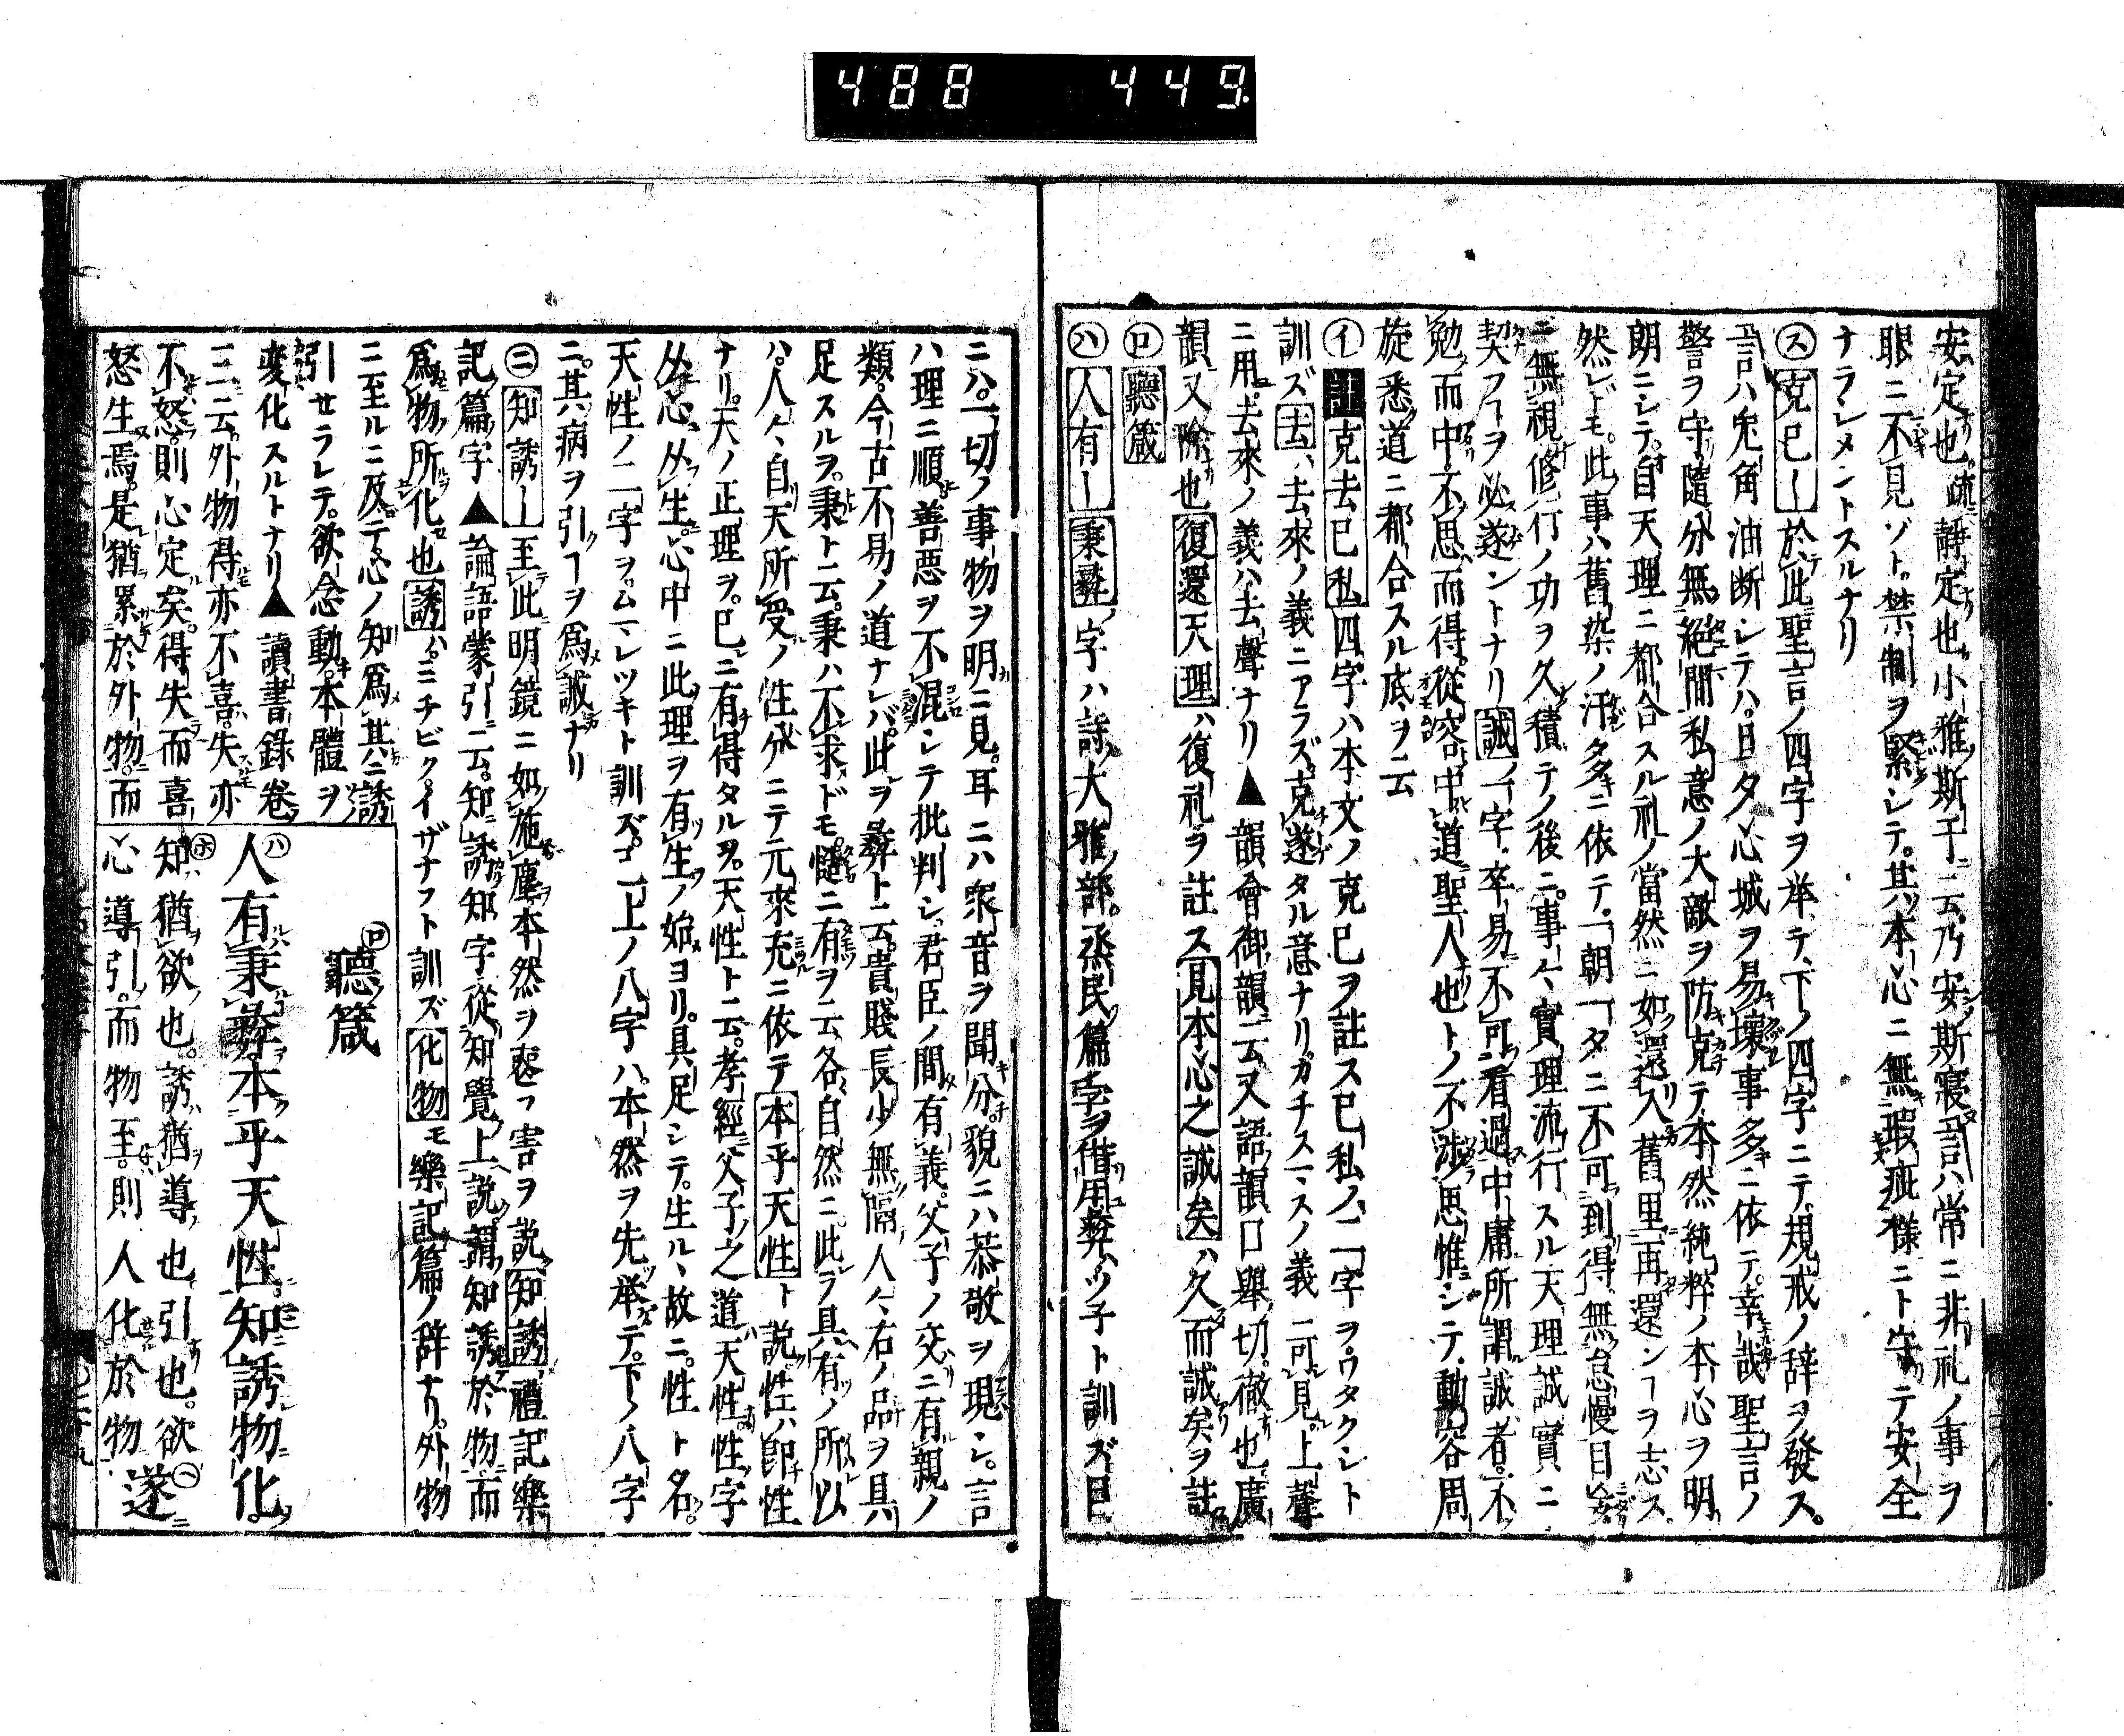 488 449.
安定也疏靜定也小雅斯干ニ云乃安斯寢言ハ常ニ非礼ノ事ヲ
眼ニ不見ゾト禁制ヲ緊シテ其本心ニ無瑕疵様ニト守テ安全
ナラシメントスルナリ
㋜克己ー於此聖言ノ四字ヲ举テ下ノ四字ニテ規戒ノ辞ヲ發ス
言ハ兎角油断シテハ日夕心城ヲ易壞事多ニ依テ幸哉聖言ノ
警ヲ守隨分無絕間私意ノ大敵ヲ防克テ本然純粹ノ本心ヲ明
朗ニシテ自天理ニ都合スル礼ノ當然ニ如還入舊里再還ンヿヲ志ス
然レドモ此事ハ舊染ノ汗多ニ依テ一朝一夕ニ不可到得無怠慢日
ニ無視修行ノ功ヲ久積テノ後ニ事々實理流行スル天理誠實ニ
契フヿヲ必遂ントナリ誠ノ一字卒易不可看過中庸所謂誠者不
勉而中不思而得從容中道聖人也トノ不涉思惟シテ動容周
旋悉道ニ都合スル底ヲ云
㋑註克去己私四字ハ本文ノ克己ヲ註ス己私ノ二字ヲワタクシト
訓ズ去ハ去來ノ義ニアラズ克遂タル意ナリガチスマスノ義可見上聲
ニ用去來ノ義ハ去聲ナリ▲韻會御韻ニ云又語韻口舉切徹也廣
韻又除也復還天理ハ復礼ヲ註ス見本心之誠矣ハ久而誠矣ヲ註
㋺聽箴
㋩人有ー秉彝ノ字ハ詩大雅部烝民篇字ヲ借用彝ハツ子ト訓ズ目
ニハ一切ノ事物ヲ明ニ見耳ニハ衆音ヲ聞分貌ニハ恭敬ヲ現シ言
ハ理ニ順善悪ヲ不混シテ批判シ君臣ノ間有義父子ノ交ニ有親ノ
類今古不易ノ道ナレバ此ヲ彝ト云貴賤長少無隔人々右ノ品ヲ具
足スルヲ秉ト云秉ハ不求ドモ慥ニ有ヲ云各自然ニ此ヲ具有ノ所以
ハ人々自天所受ノ性分ニテ元來充ニ依テ本乎天性ト説性ハ即性
ナリ天ノ正理ヲ己ニ有得タルヲ天性ト云孝經父子之道天性性字
从忄从生心中ニ此理ヲ有生ノ始ヨリ具足シテ生ル故ニ性ト名
天性ノ二字ヲムマレツキト訓ズ一上ノ八字ハ本然ヲ先举テ下ノ八字
ニ其病ヲ引ヿヲ爲誡ナリ
㋥知誘ー至此明鏡ニ如施塵本然ヲ惑フ害ヲ説知誘禮記樂
記篇字▲論語蒙引ニ云知誘知字從知覺上説謂知誘於物而
爲物所化也誘ハミチビクイザナフト訓ズ化物モ樂記篇ノ辞ナリ外物
ニ至ルニ及テ心ノ知爲其誘
引サラレテ欲念動本體ヲ
変化スルトナリ▲讀書錄卷
三云外物得亦不喜失亦
不怒則心定矣得失而喜
怒生焉是猶累於外物而
㋺聽箴
㋩人有秉彝本乎天性知誘物化
㋭知猶欲也誘猶導也引也欲㋬遂
心導引而物至則人化於物